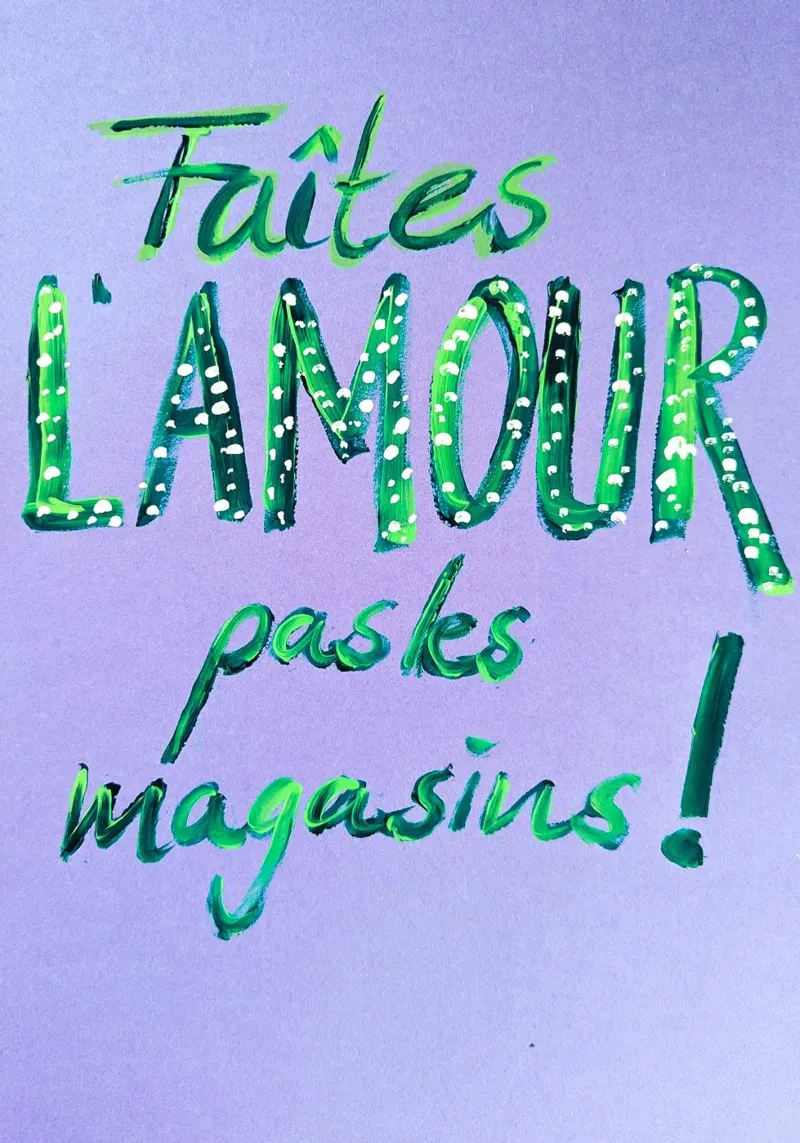 Faîtes
L'AMOUR
pas les
magasins!